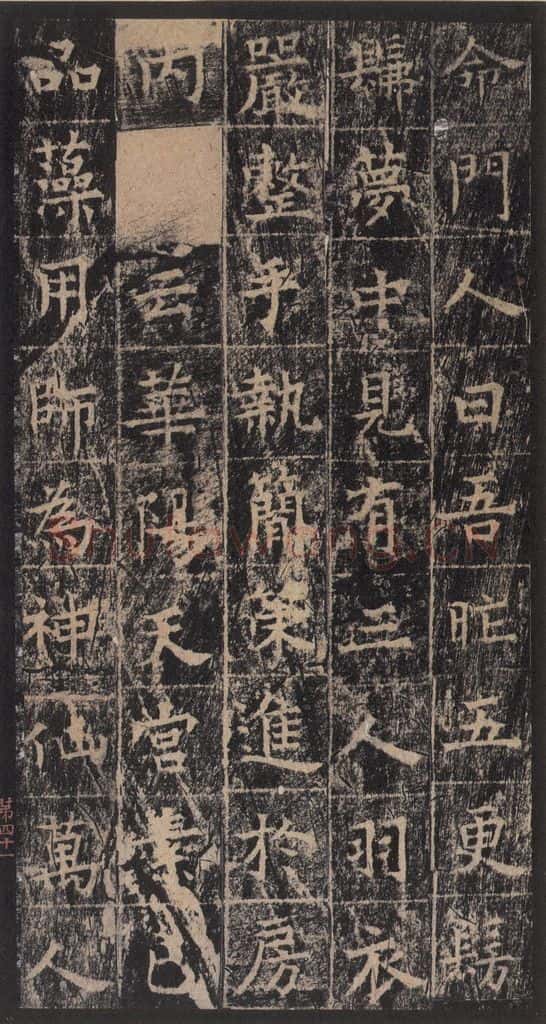 命門人曰吾昨五更髣
髴夢中見有三人羽衣
嚴整手執簡策進於房
内云華陽天宮已
品藻用師為神仙萬人
第四十一